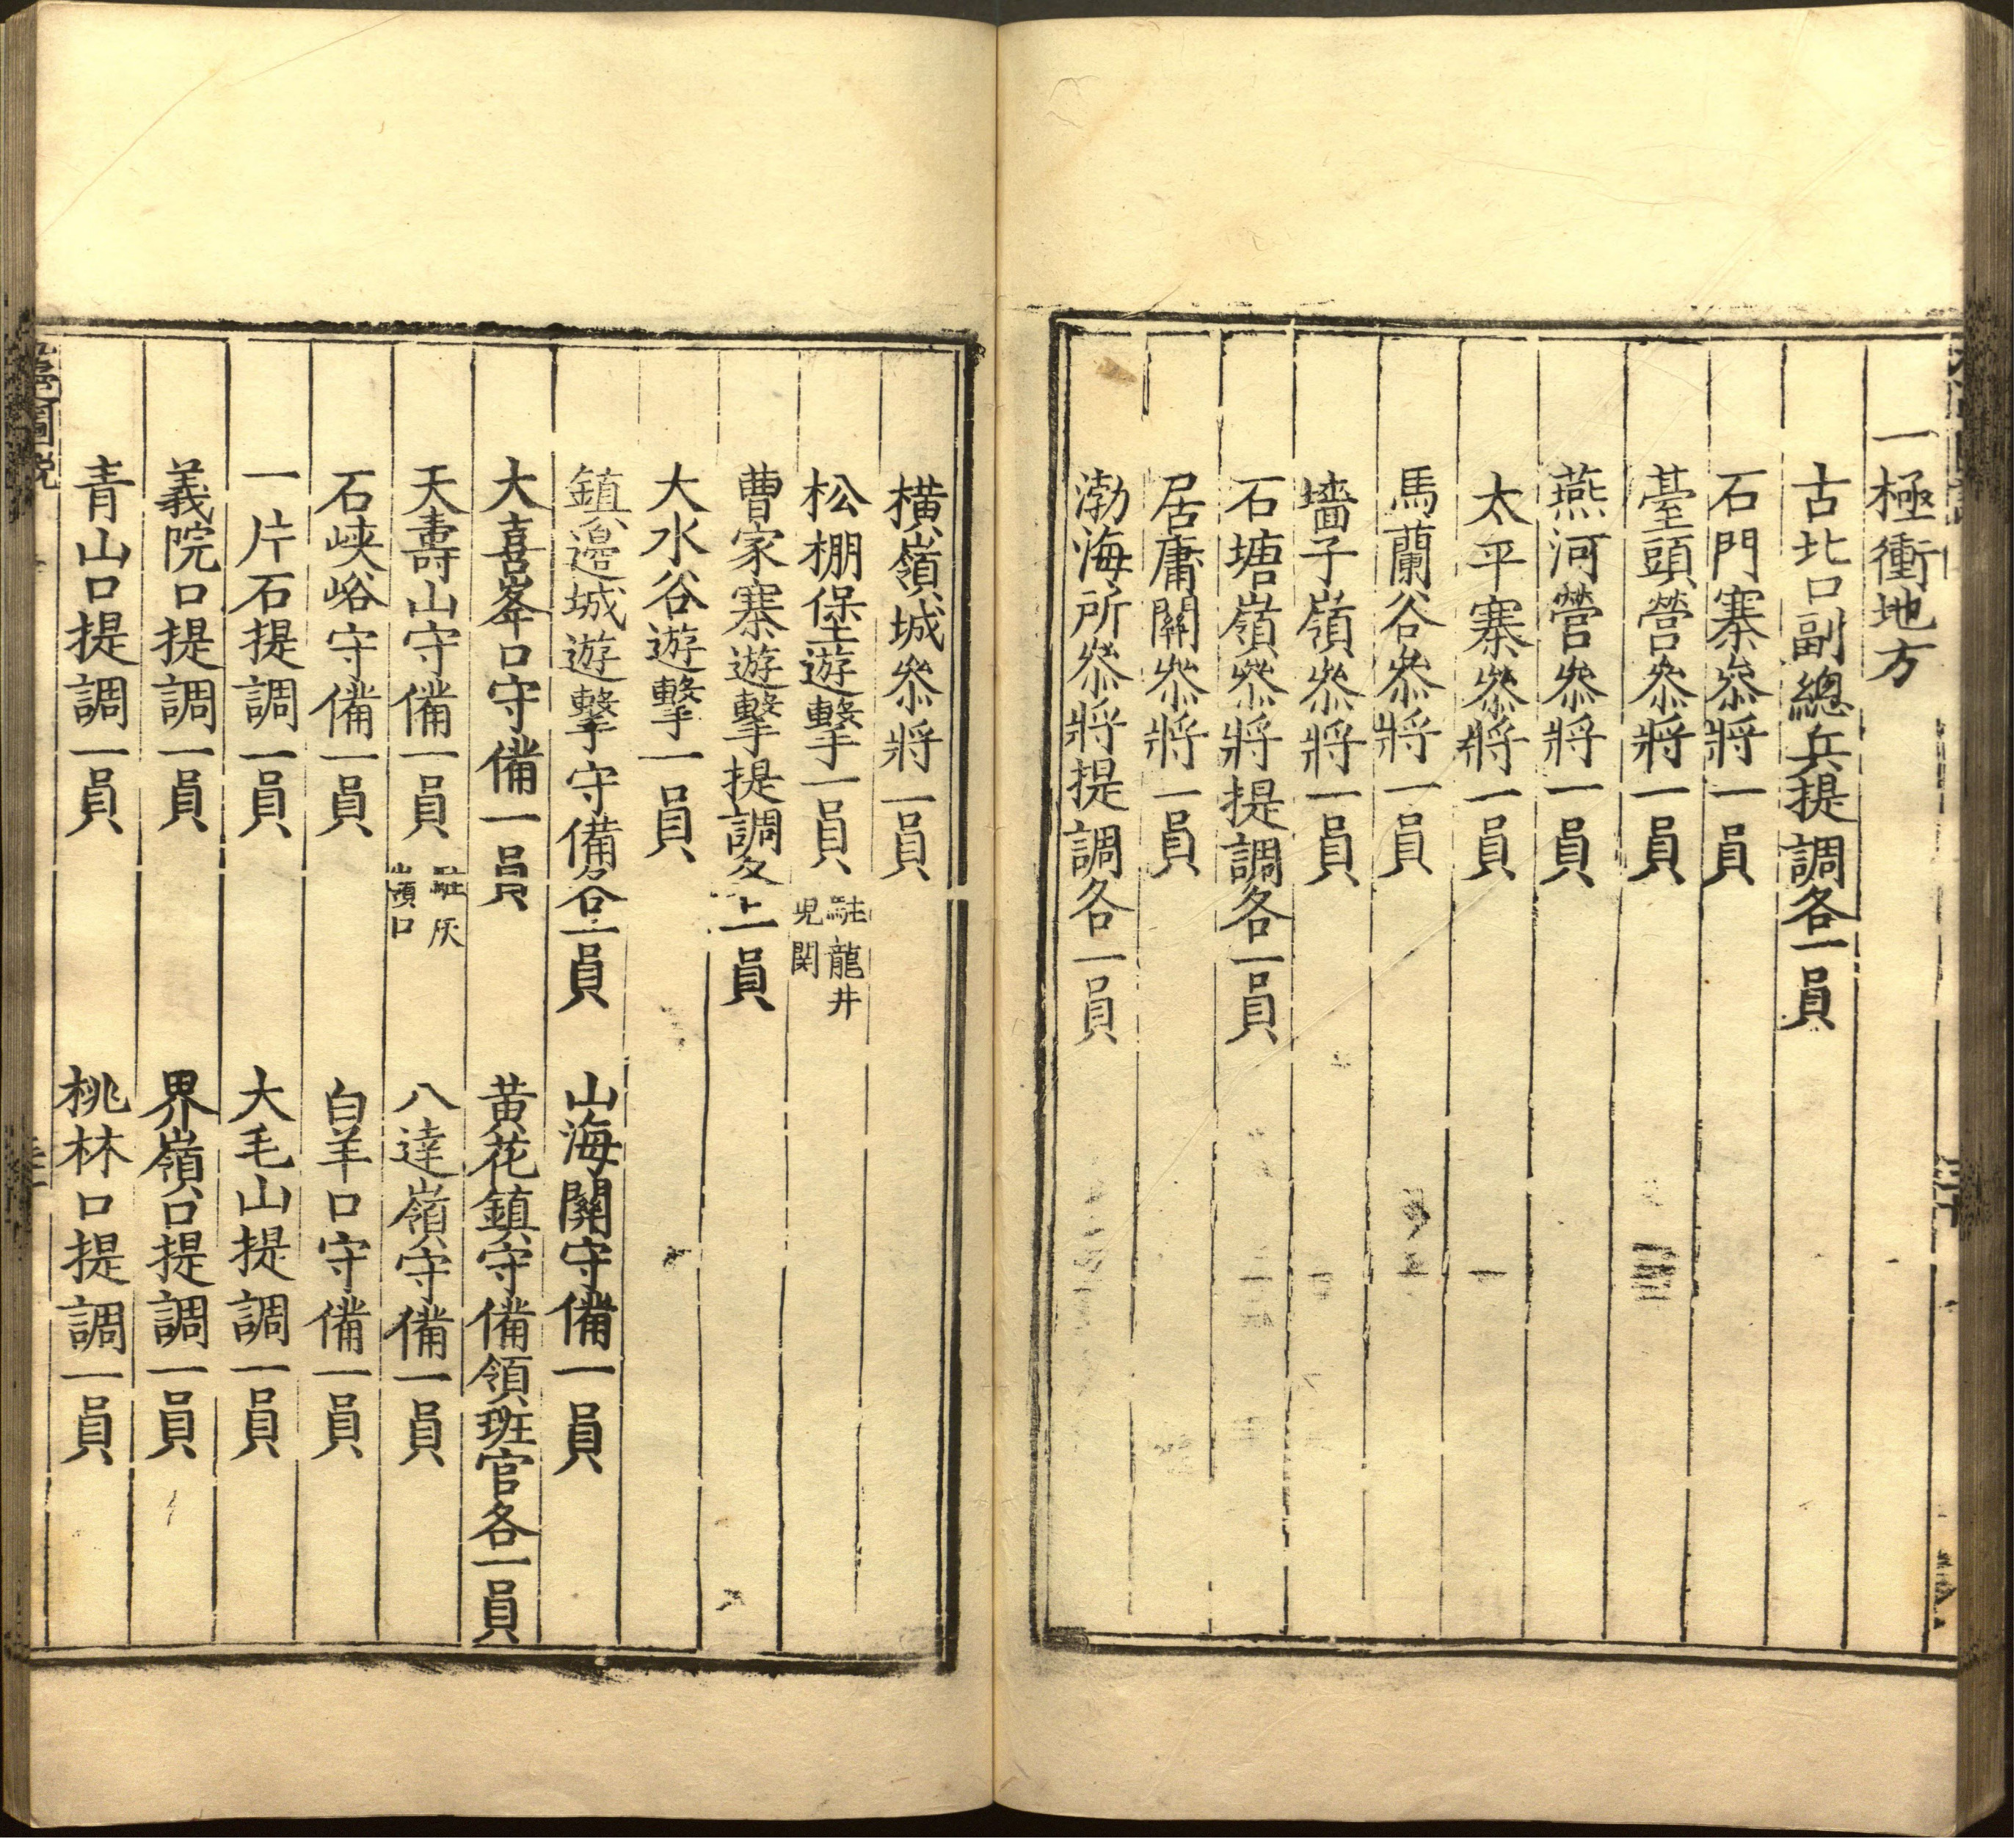 一極衝地方
古北口副總兵提調各一員
石門寨叅將一員
臺頭營叅將一員
燕河營叅將一員
太平寨叅將一員
馬蘭谷叅將一員
墻子嶺叅將一員
石塘嶺叅將提調各一員
居庸關叅將一員
渤海所叅將提調各一員
橫嶺城叅將一員
松棚堡遊擊一員 駐龍井兒関
曹家寨遊擊提調各一員
大水谷遊擊一員
鎮邊城遊擊守備各一員 山海關守備一員
大喜峯口守備一員 黄花鎮守備領班官各一員
天壽山守備一員 駐灰嶺口 八達嶺守備一員
石峽峪守備一員 白羊口守備一員
一片石提調一員 大毛山提調一員
義院口提調一員 界嶺口提調一員
青山口提調一員 桃林口提調一員